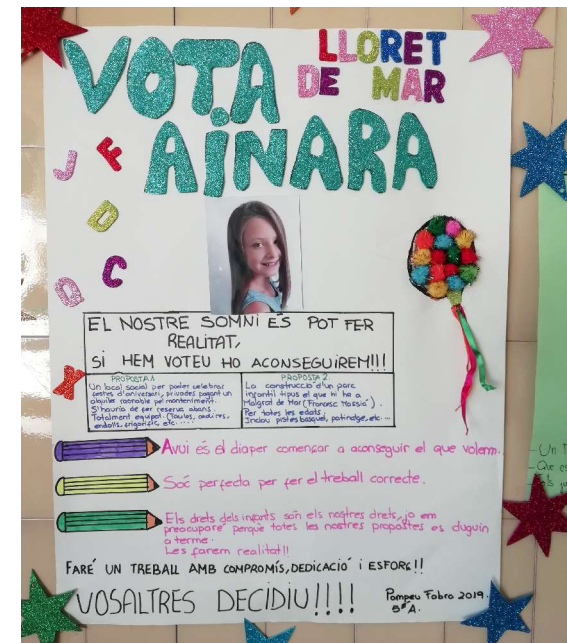 LLORET
DE MAR
VOTA
AINARA
J F
D
C
Q
X
EL NOSTRE SOMNI ES POT FER
REALITAT,
SI HEM VOTEU HO ACONSEGUIREM!!!
PROPOSTA 1
Un local social per poder celebrar
festes d'aniversari, privades pagant un
lloguer raonable pel manteniment.
S'hauria de fer reserva abans.
Totalment equipat. (Taules, cadires,
endolls, frigorífic, etc.....
PROPOSTA 2
La construcció d'un parc
infantil tipus el que hi ha a
Malgrat de Mar (Francesc Macià).
Per totes les edats.
Inclou pistes basquet, patinatge, etc...
Avui és el dia per començar a aconseguir el que volem.
Soc perfecta per fer el treball correcte.
Els drets dels infants són els nostres drets, jo em
preocuparé perquè totes les nostres propostes es duguin
a terme.
Les farem realitat!!
FARÉ UN TREBALL AMB COMPROMÍS, DEDICACIÓ I ESFORÇ!!
VOSALTRES DECIDIU!!!!
Pompeu Fabra 2019.
5è A.
- Un
- Que es